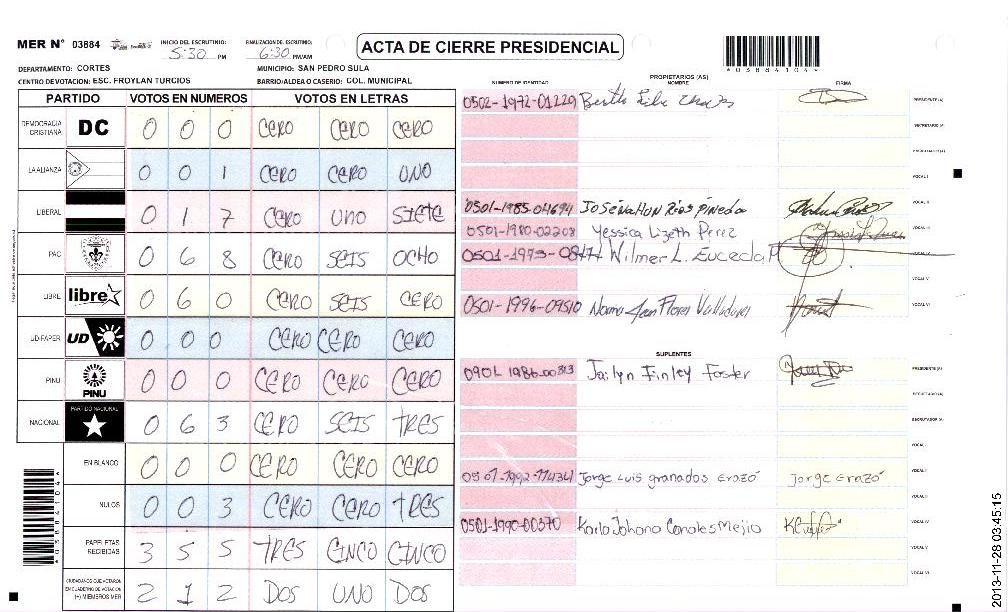 MER N° 03884 INICIO DEL ESCRUTINIO: 5:30 PM FINALIZACION DE. ESCRUTINIO: 6:30 PM/AM
ACTA DE CIERRE PRESIDENCIAL
*03884104*
DEPARTAMENTO: CORTES MUNICIPIO: SAN PEDRO SULA
CENTRO DE VOTACION: ESC. FROYLAN TURCIOS BARRIO/ALDEA O CASERIO: COL. MUNICIPAL
PARTIDO VOTOS EN NUMEROS VOTOS EN LETRAS
DEMOCRACIA CRISTIANA DC 0 0 0 CERO CERO CERO
LA ALIANZA 0 0 1 CERO CERO UNO
LIBERAL 0 1 7 CERO UNO SIETE
PAC 0 6 8 CERO SEIS OCHO
LIBRE libre 0 6 0 CERO SEIS CERO
UD-FAPER UD 0 0 0 CERO CERO CERO
PINU PINU 0 0 0 CERO CERO CERO
NACIONAL PARTIDO NACIONAL 0 6 3 CERO SEIS TRES
EN BLANCO 0 0 0 CERO CERO CERO
NULOS 0 0 3 CERO CERO TRES
PAPELETAS RECIBIDAS 3 5 5 TRES CINCO CINCO
CIUDADANOS QUE VOTARON EN CUADERNO DE VOTACION (+) MIEMBROS MER 2 1 2 DOS UNO DOS
*03884104*
PROPIETARIOS (AS)
NUMERO DE IDENTIDAD NOMBRE FIRMA
0502-1972-01229 PRESIDENTE (A)
SECRETARIO (A)
ESCRUTADOR (A)
VOCAL I
0501-1985-04694 VOCAL II
0501-1980-02208 Yessica Lizeth Perez VOCAL III
Wilmer L. Euceda M VOCAL IV
VOCAL V
0501-1996-09510 Flores Valladares VOCAL VI
SUPLENTES
Jailyn Finley Foster PRESIDENTE (A)
SECRETARIO (A)
ESCRUTADOR (A)
VOCAL I
Jorge Luis granados Erazó Jorge Erazó VOCAL II
VOCAL III
0501-1990-00370 Karla Johana Canales Mejia VOCAL IV
VOCAL V
VOCAL VI
2013-11-28 03:45:15